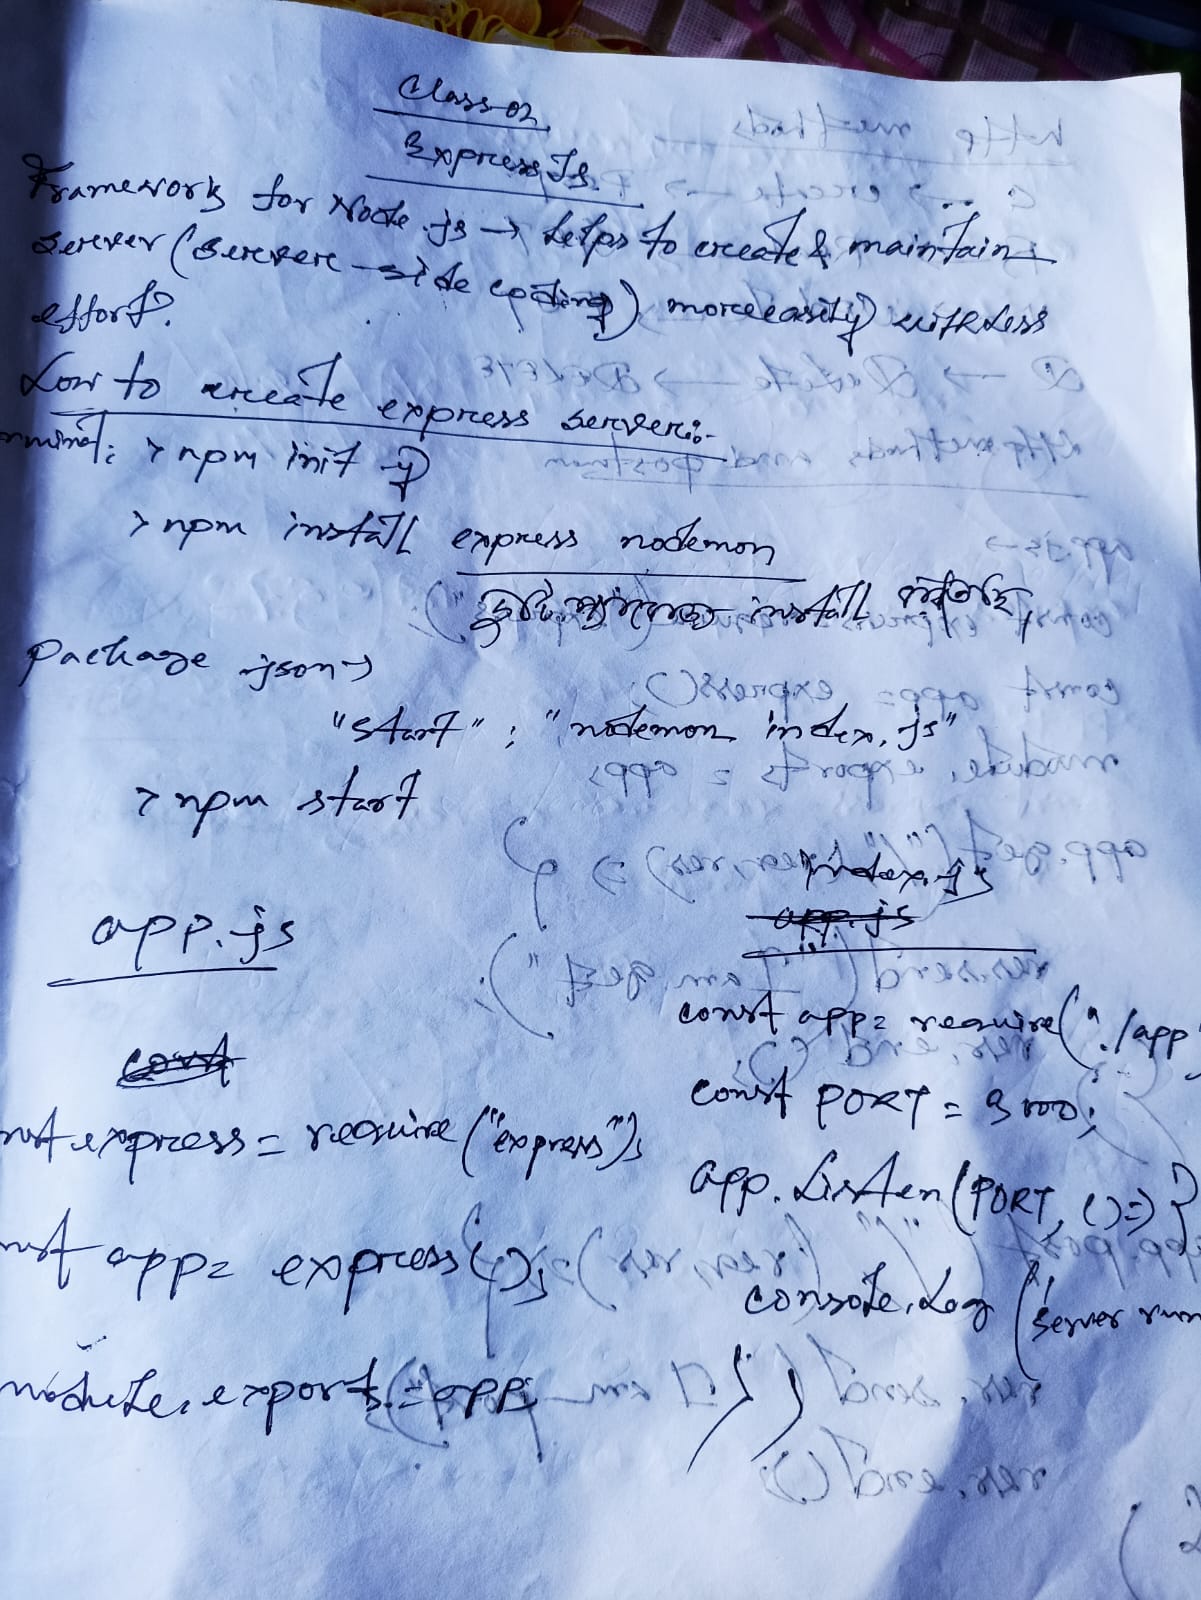 Class-02
Express Js.
Framework for Node.js → helps to create & maintain
server (server-side coding) more easily with less
effort.
How to create express server:-
> npm init -y
> npm install express nodemon
install
package.json →
"start" : "nodemon index.js"
> npm start
app.js
express = require("express");
app = express();
module.exports = app;
index.js
app.js
const app = require("./app
const PORT = 3000;
app.listen(PORT, () => {
console.log("server run
})